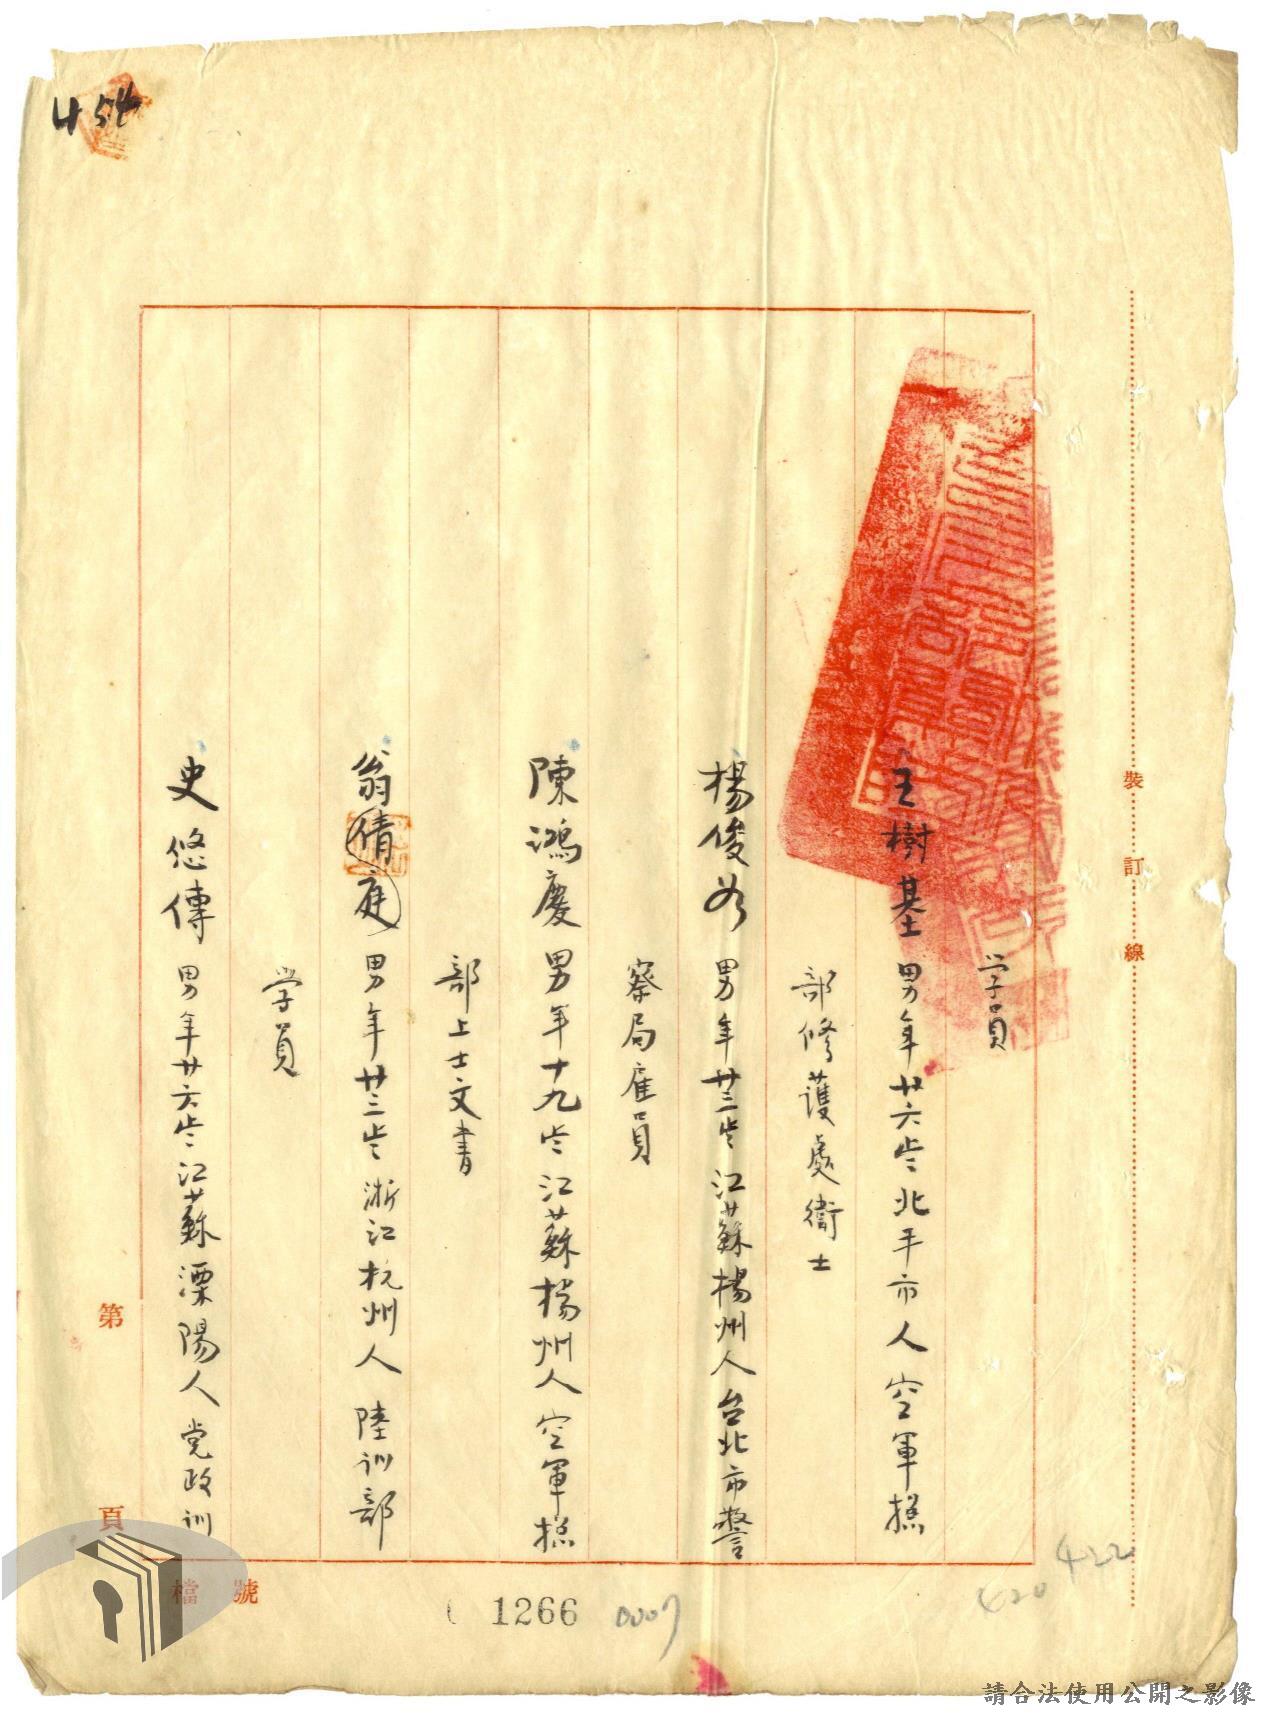 454
学員
王樹基 男年廿六歲北平市人空軍總
部修護處衛士
楊俊 男年廿三歲江蘇揚州人台北市警
察局雇員
陳鴻慶 男年十九歲江蘇揚州人空軍總
部上士文書
翁倩庭 男年廿三歲浙江杭州人 陸訓部
学員
史悠傳 男年廿六歲江蘇溧陽人 党政訓
裝 訂 線
第 頁
檔 號
1266
0007
420
422
請合法使用公開之影像